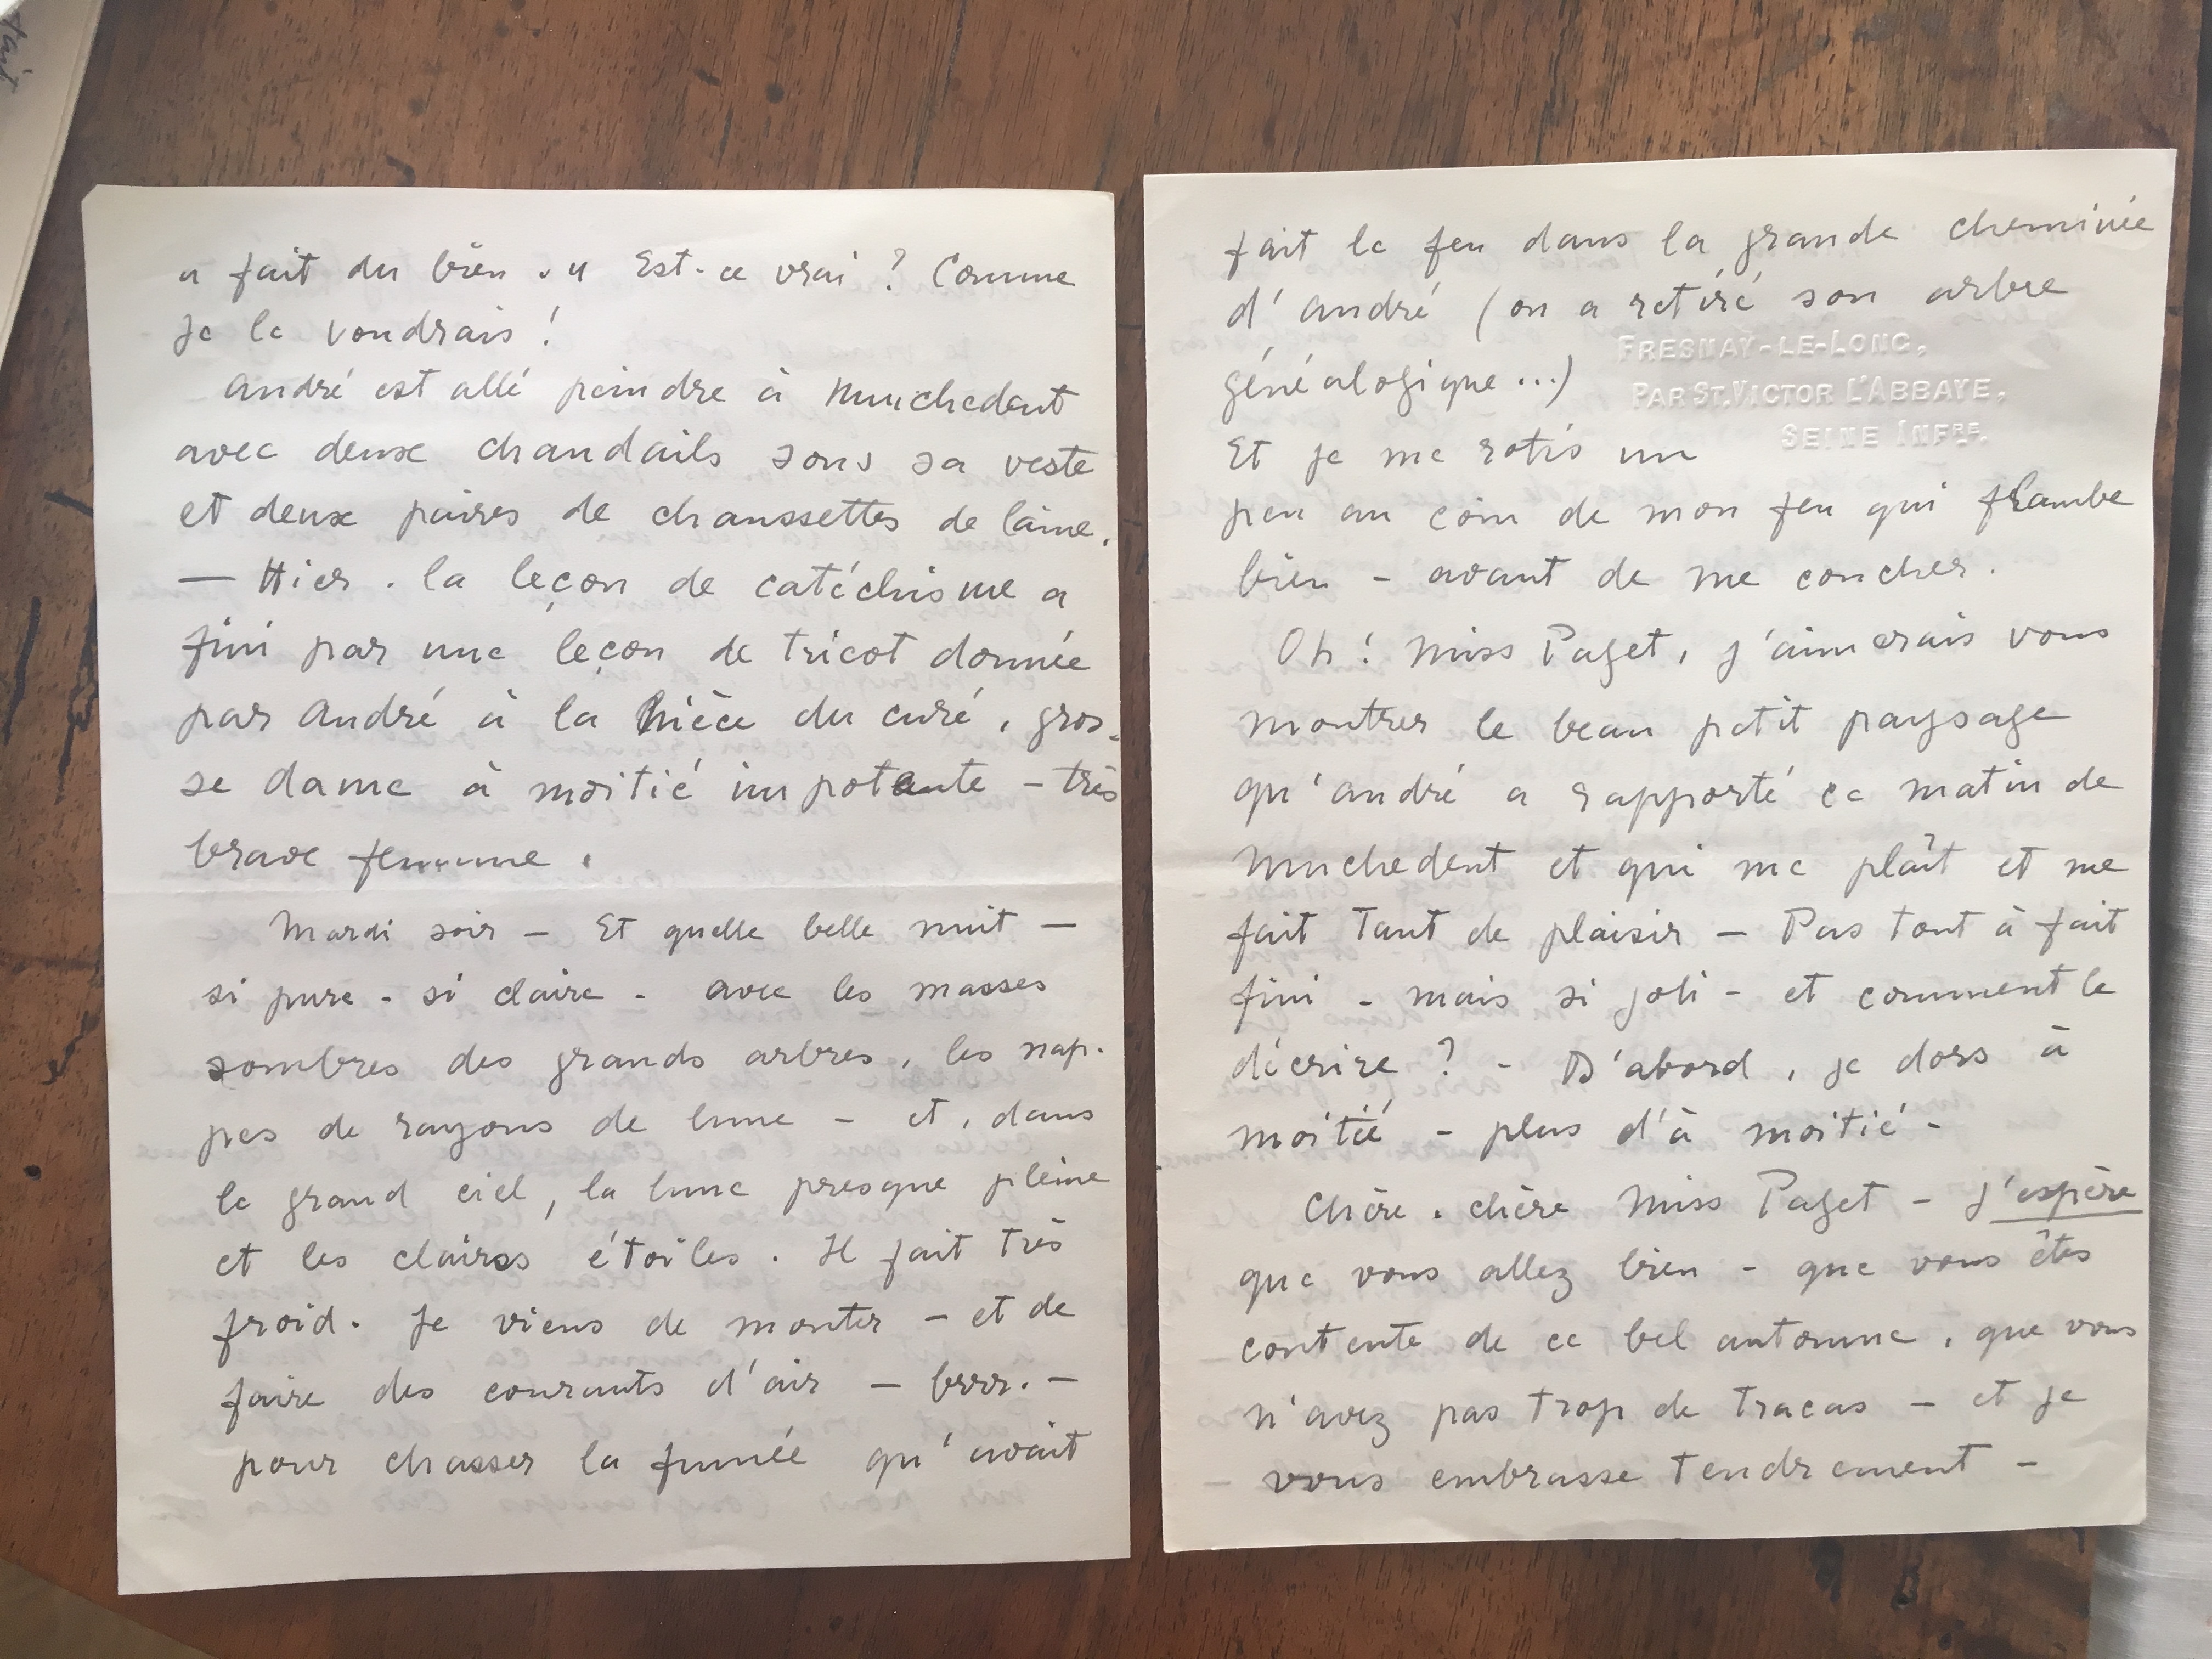 a fait du bien. " Est-ce vrai ? Comme
je le voudrais !
André est allé peindre à Muchedent
avec deux chandails sous sa veste
et deux paires de chaussettes de laine.
— Hier. la leçon de catéchisme a
fini par une leçon de tricot donnée
par André à la nièce du curé, gros-
se dame à moitié impotente - très
brave femme.
Mardi soir — Et quelle belle nuit —
si pure - si claire - avec les masses
sombres des grands arbres, les nap-
pes de rayons de lune — et, dans
le grand ciel, la lune presque pleine
et les claires étoiles. Il fait très
froid. Je viens de monter — et de
faire des courants d'air — brrr. —
pour chasser la fumée qu'avait
fait le feu dans la grande cheminée
d'André (on a retiré son arbre
généalogique...)
FRESNAY-LE-LONG,
PAR ST. VICTOR L'ABBAYE,
SEINE INFRE.
Et je me rotis un
peu au coin de mon feu qui flambe
bien - avant de me coucher.
Oh ! Miss Paget, j'aimerais vous
montrer le beau petit paysage
qu'André a rapporté ce matin de
Muchedent et qui me plaît et me
fait tant de plaisir — Pas tout à fait
fini - mais si joli - et comment le
décrire ? - D'abord, je dors à
moitié - plus d'à moitié -
Chère. chère Miss Paget - j'espère
que vous allez bien - que vous êtes
contente de ce bel automne, que vous
n'avez pas trop de tracas — et je
vous embrasse tendrement -